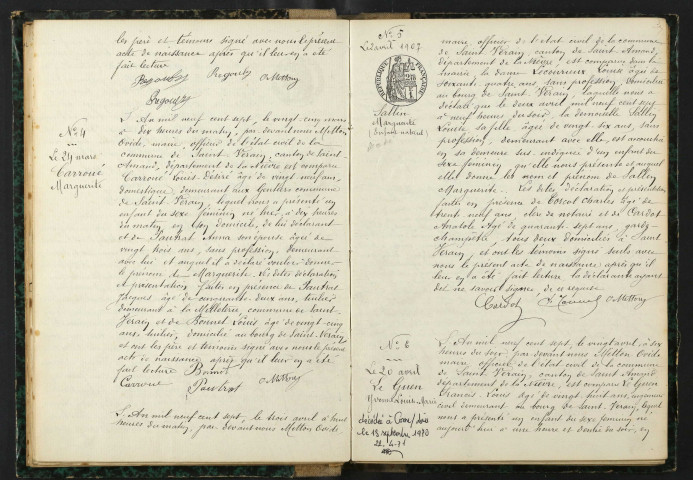 les père et témoins signé avec nous le présent
acte de naissance après qu'il leur en a été
fait lecture
N° 4
Le 24 mars
Carroué
Marguerite
L'An mil neuf cent sept, le vingt cinq mars
à dix heures du matin, par devant nous Metton
Ovide, maire, officier de l'état civil de la
commune de Saint Verain, canton de Saint-
Amand, département de la Nièvre est comparu
Carroué Louis Désiré âgé de vingt neuf ans,
domestique demeurant aux Gautiers commune
de Saint Verain, lequel nous a présenté un
enfant du sexe féminin né hier, à dix heures
du matin, en son domicile, de lui déclarant
et de Pautrat Anna son épouse âgée de
vingt trois ans, sans profession, demeurant
avec lui et auquel il a déclaré vouloir donner
le prénom de Marguerite. Les dites déclaration
et présentation faites en présence de Pautrat
Jacques âgé de cinquante deux ans, tuilier
demeurant à la commune de Saint-
Verain et de Bonnet Louis âgé de vingt cinq
ans, tuilier, domicilié au bourg de Saint Verain
et ont les père et témoins signé avec nous le présent
acte de naissance après qu'il leur en a été
fait lecture
Carroué Pautrat
L'An mil neuf cent sept, le trois avril à huit
heures du matin, par devant nous Metton Ovide
N° 5
Le 2 avril 1907
REPUBLIQUE FRANÇAISE
Sallen
Marguerite
(Enfant naturel)
maire, officier de l'état civil de la commune
de Saint Verain, canton de Saint Amand,
département de la Nièvre, est comparue dans la
mairie la dame Lecouvreux Louise âgée de
soixante quatre ans, sans profession, domiciliée
au bourg de Saint Verain, laquelle nous a
déclaré que le deux avril mil neuf cent sept
à neuf heures du soir, la demoiselle Sallen
Louise sa fille, âgée de vingt six ans, sans
profession, demeurant avec elle, est accouchée
en sa demeure dudit d'un enfant du
sexe féminin qu'elle nous présente et auquel
elle donne les nom et prénom de Sallen
Marguerite. Les dites déclaration et présentation
faites en présence de Charles âgé de
trente neuf ans, clerc de notaire et de Cardot
Anatole âgé de quarante sept ans, garde
champêtre, tous deux domiciliés à Saint
Verain, et ont les témoins signé seuls avec
nous le présent acte de naissance après qu'il
leur en a été fait lecture la déclarante ayant
dit ne savoir signer, de ce requise
Cardot
N° 6
Le 20 avril
Le Guen
Yvonne Louise Marie
décédée à Cosne
le 18 septembre 1970
L'An mil neuf cent sept, le vingt avril, à six
heures du soir par devant nous Metton Ovide
maire, officier de l'état civil de la commune
de Saint Verain, canton de Saint Amand
département de la Nièvre, est comparu Le Guen
François Louis âgé de vingt huit ans,
demeurant au bourg de Saint Verain, lequel
nous a présenté un enfant du sexe féminin né
aujourd'hui à une heure et demie du soir, en